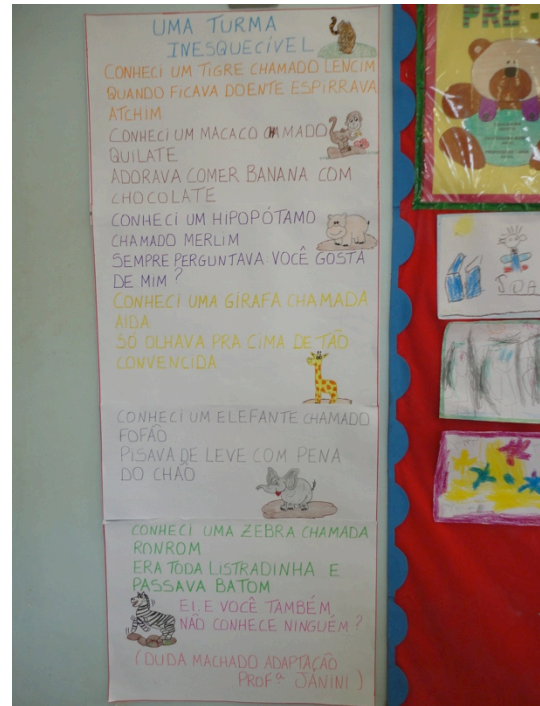 UMA TURMA
INESQUECÍVEL
CONHECI UM TIGRE CHAMADO LENCIM
QUANDO FICAVA DOENTE ESPIRRAVA
ATCHIM
CONHECI UM MACACO CHAMADO
QUILATE
ADORAVA COMER BANANA COM
CHOCOLATE
CONHECI UM HIPOPÓTAMO
CHAMADO MERLIM
SEMPRE PERGUNTAVA: VOCÊ GOSTA
DE MIM?
CONHECI UMA GIRAFA CHAMADA
AIDA
SÓ OLHAVA PRA CIMA DE TÃO
CONVENCIDA
CONHECI UM ELEFANTE CHAMADO
FOFÃO
PISAVA DE LEVE COM PENA
DO CHÃO
CONHECI UMA ZEBRA CHAMADA
RONROM
ERA TODA LISTRADINHA E
PASSAVA BATOM
EI, E VOCÊ TAMBÉM,
NÃO CONHECE NINGUÉM?
(DUDA MACHADO ADAPTAÇÃO
PROFª JANINI)
PRÉ -